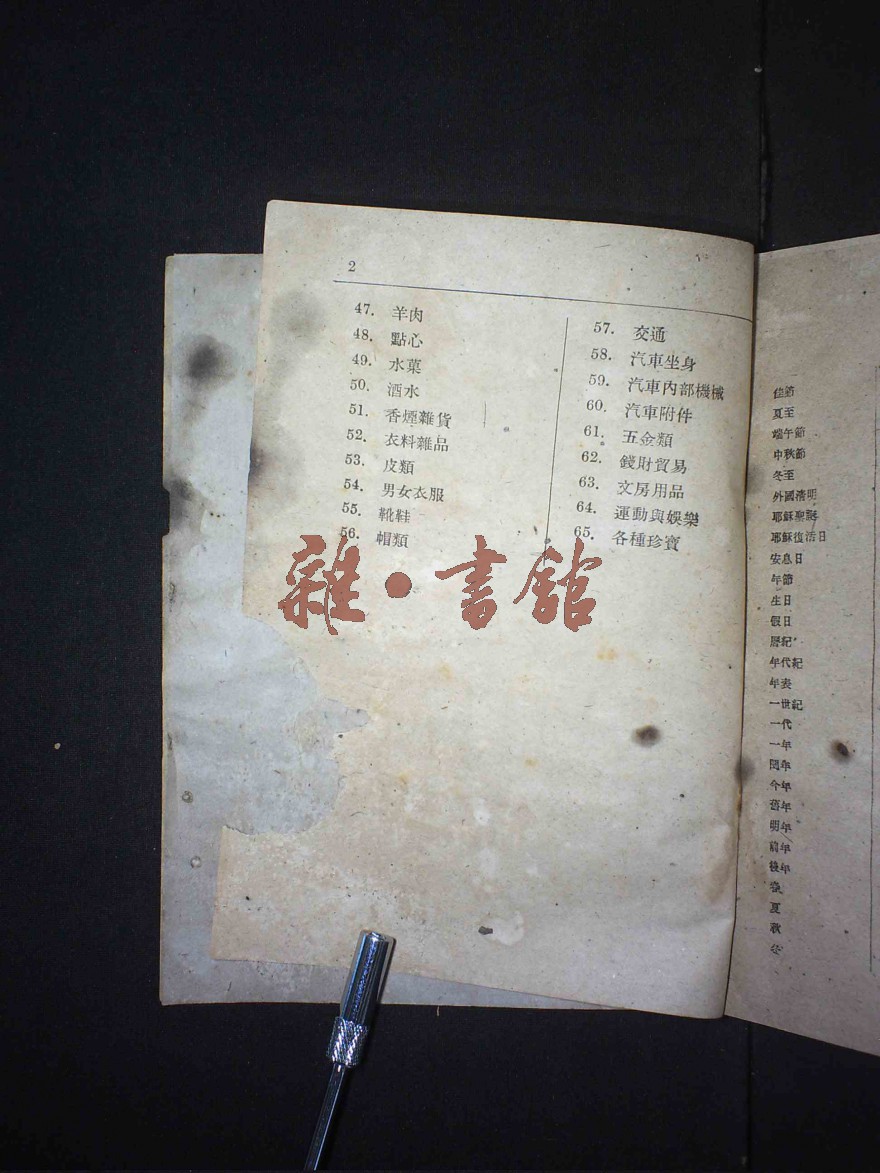 2
47. 羊肉
48. 點心
49. 水菓
50. 酒水
51. 香煙雜貨
52. 衣料雜品
53. 皮類
54. 男女衣服
55. 靴鞋
56. 帽類
57. 交通
58. 汽車坐身
59. 汽車內部機械
60. 汽車附件
61. 五金類
62. 錢財貿易
63. 文房用品
64. 運動與娛樂
65. 各種珍寶
雜·書館
佳節
夏至
端午節
中秋節
冬至
外國清明
耶穌聖誕
耶穌復活日
安息日
年節
生日
假日
歷紀
年代紀
年表
一世紀
一代
一年
閏年
今年
舊年
明年
前年
後年
夏
秋
冬